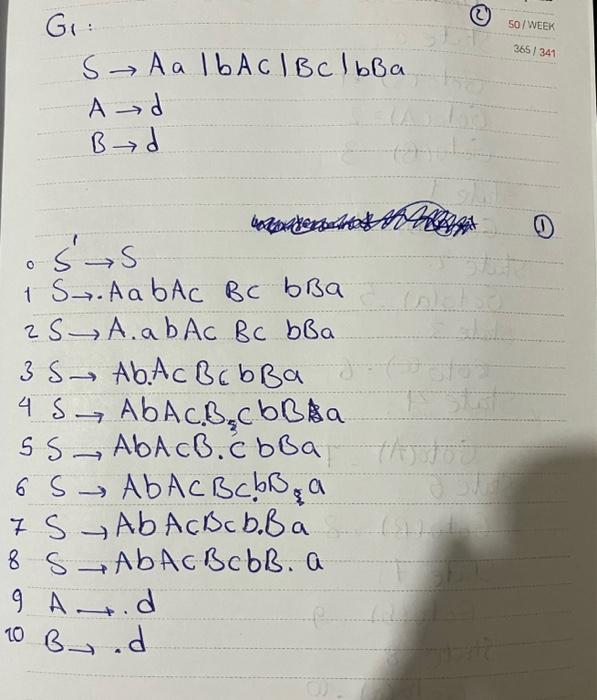 G1: ②
50 / WEEK
365 / 341
S → Aa | bAc | Bc | bBa
A → d
B → d
①
0 S' → S
1 S → .AabAc Bc bBa
2 S → A.abAc Bc bBa
3 S → Ab.AcBcbBa
4 S → AbAc.B.cbBa
5 S → AbAcB.cbBa
6 S → AbAcBc.bB.a
7 S → AbAcBcb.Ba
8 S → AbAcBcbB.a
9 A → .d
10 B → .d